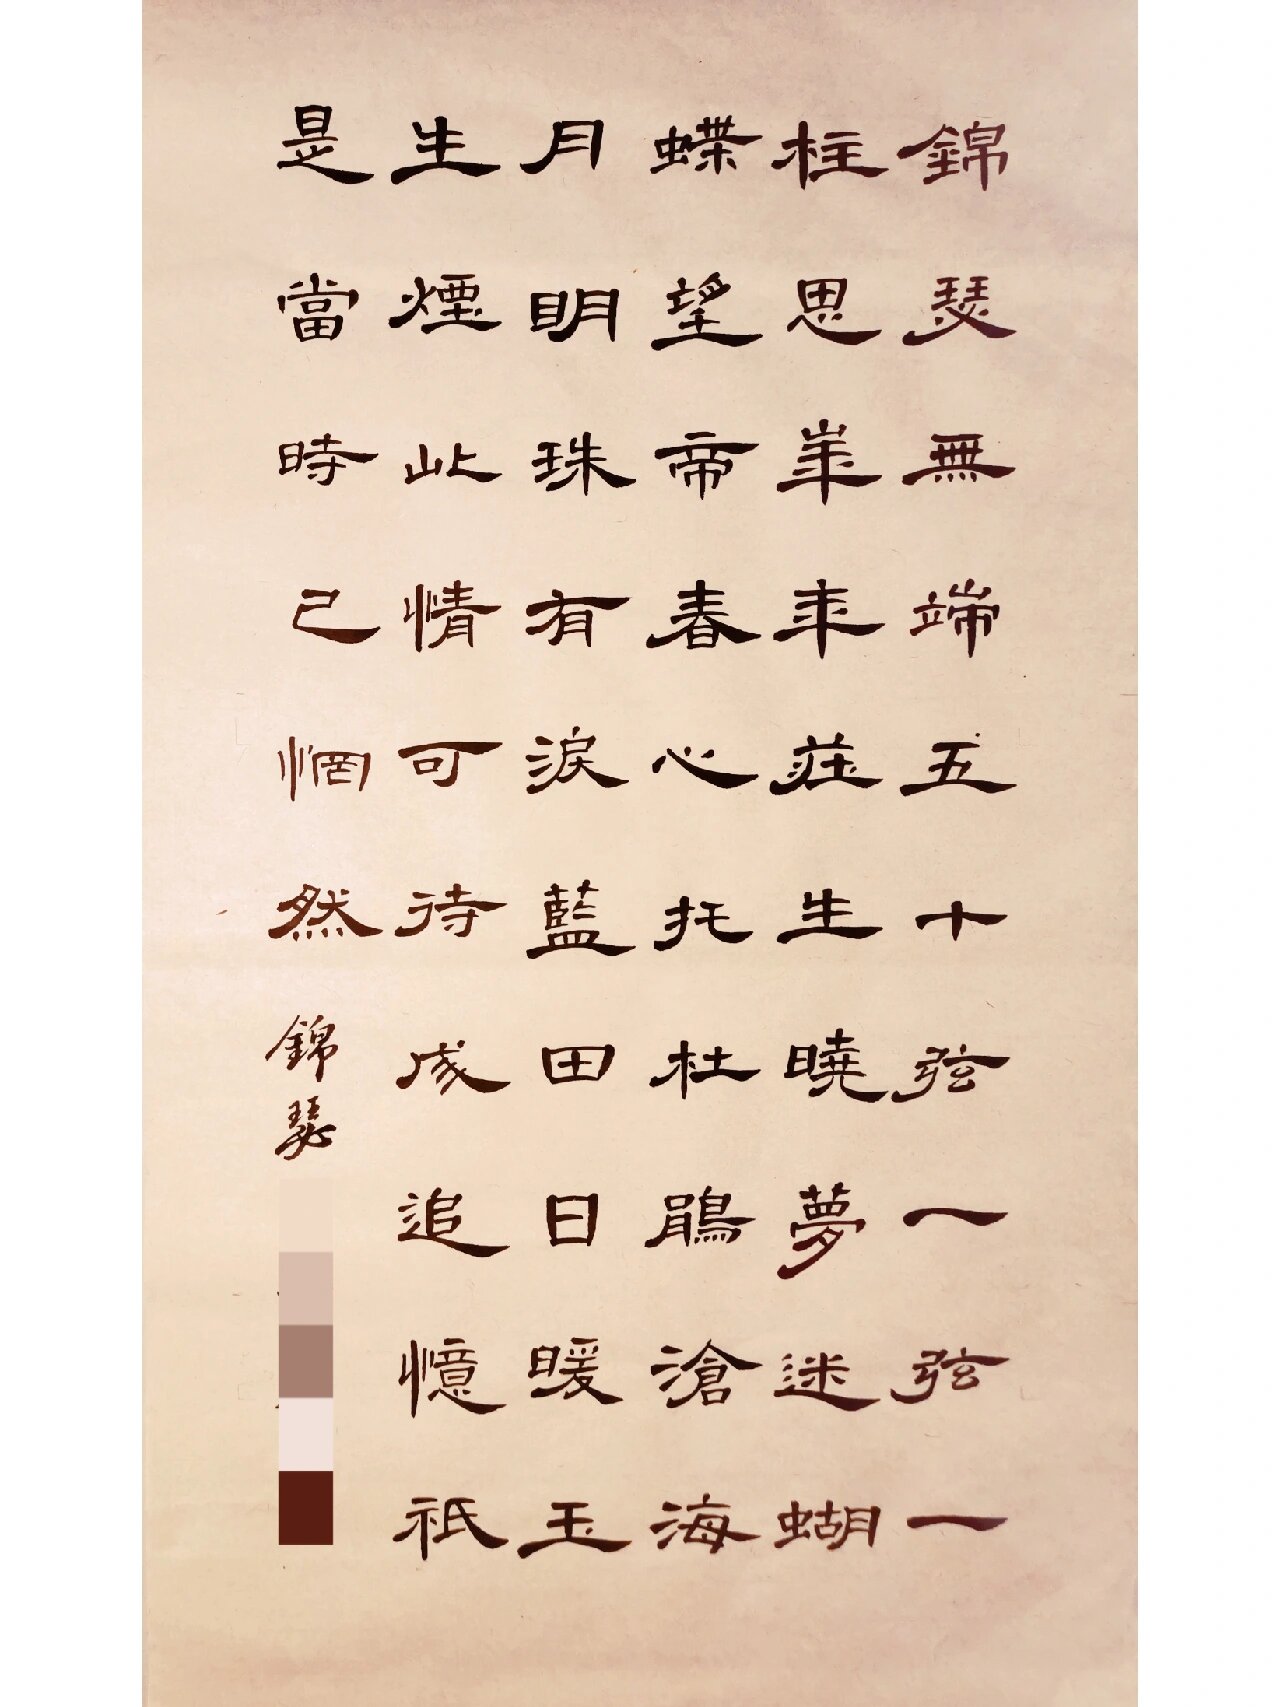 錦瑟無端五十弦一弦一
柱思華年莊生曉夢迷蝴
蝶望帝春心托杜鵑滄海
月明珠有淚藍田日暖玉
生煙此情可待成追憶祇
是當時已惘然
錦瑟